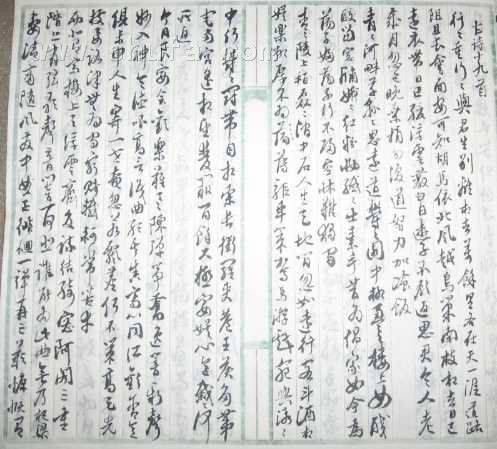 古诗十九首
行行重行行與君生别離相去万餘里各在天一涯道路
阻且長會面安可知胡馬依北風越鳥巢南枝相去日已
遠衣帶日已緩浮雲蔽白日遊子不顧返思君令人老
歲月忽已晚棄捐勿復道努力加餐飯
青河畔草思遠道欝園中柳盈樓上女皎
當窗牖娥紅粉妝纖出素手昔為倡家女今為
蕩子婦蕩子行不歸空床難獨守
青陵上柏磊澗中石人生天地間忽如遠行客斗酒相
娛樂聊厚不為薄驅車策駑馬遊戲宛與洛洛
中何欝冠帶自相索長衢羅夾巷王侯多第
宅兩宮遥相望雙闕百餘尺極宴娛心意戚何
所迫
今日良宴會歡樂難具陳彈筝奮逸響新聲
妙入神令德唱高言識曲聽其真齊心同所願含意
俱未申人生寄一世奄忽若飆塵何不策高足先
據要路津無為守窮賤轗軻長苦辛
西北有高樓上與浮雲齊交疎結綺窗阿閣三重
階上有弦歌聲音響一何悲誰能為此曲無乃杞梁
妻清商隨風發中曲正徘徊一彈再三歎慷慨有